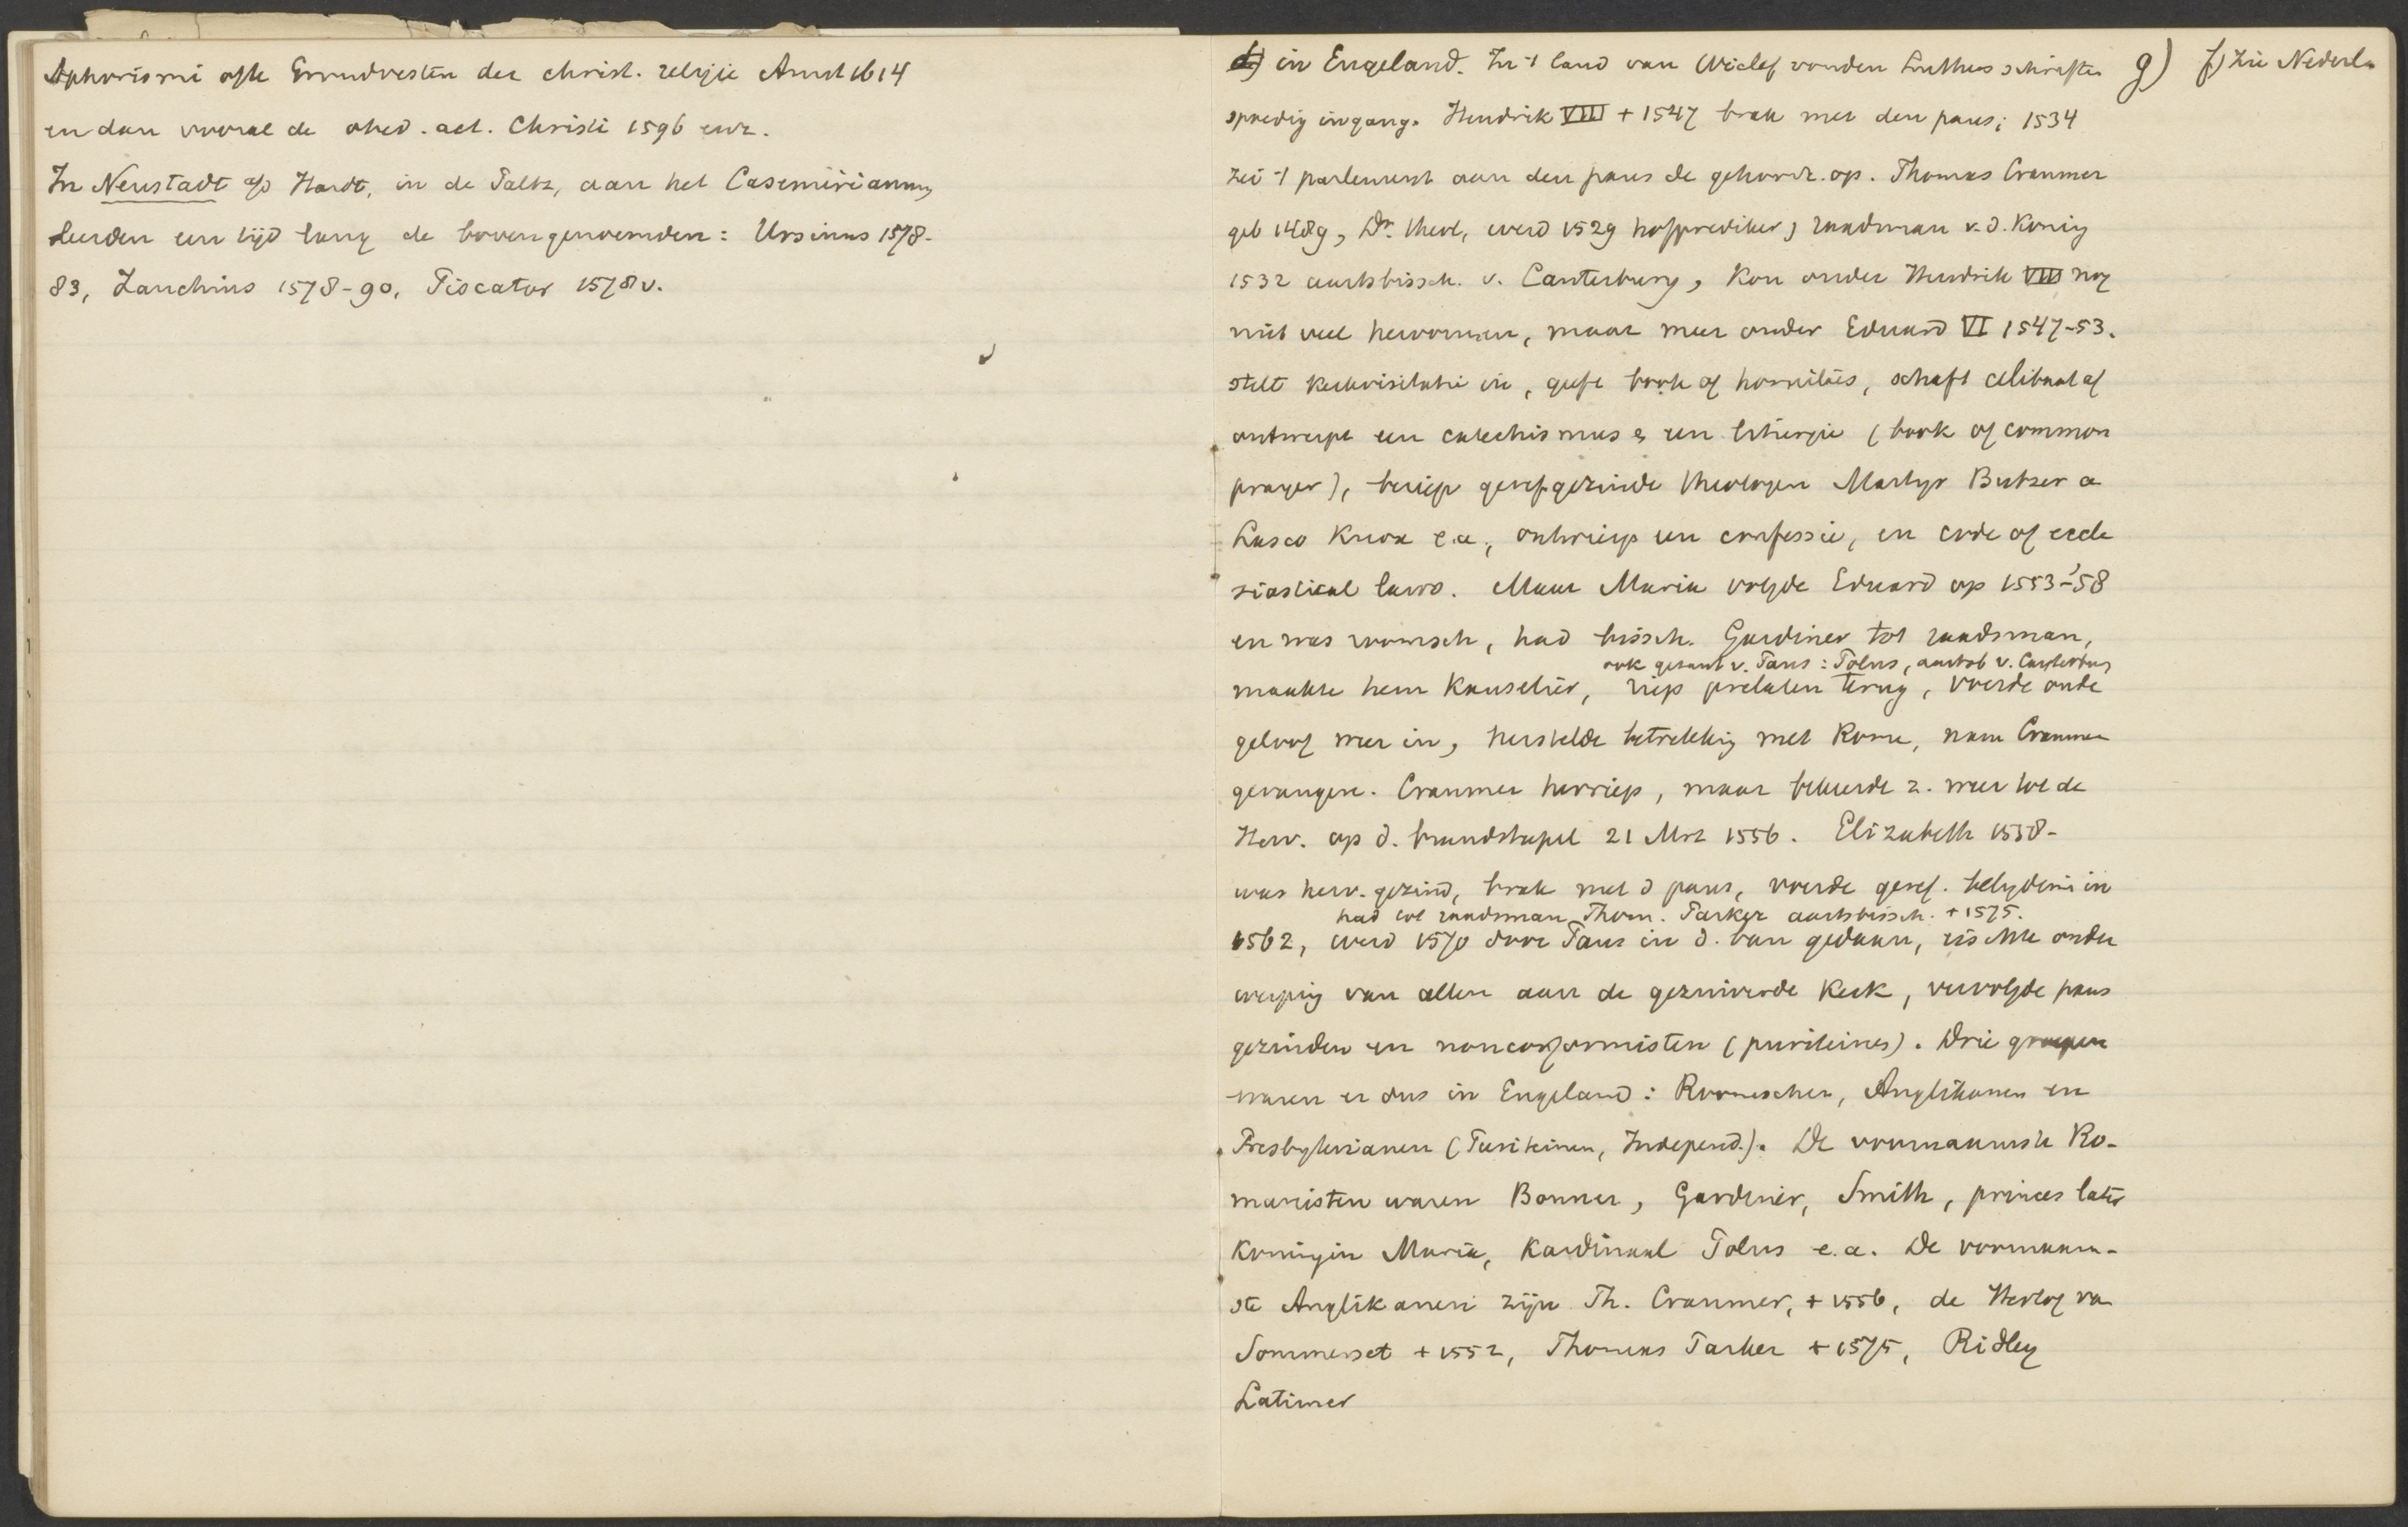 Aphorismi ofte Grondvesten der christ. religie Amst 1614
en dan vooral de obed. act. Christi 1596 enz.
In Neustadt a/d Hardt, in de Paltz, aan het Casimirianum,
leerden een tijd lang de bovengenoemden: Ursinus 1578-
83, Zanchius 1578-90, Piscator 1578 v.
in Engeland. In 't land van Wiclef vonden Luthers schriften
g) f) zie Nederla
spoedig ingang. Hendrik VIII + 1547 brak met den paus; 1534
zei 't parlement aan den paus de gehoorz. op. Thomas Cranmer
geb 1489, Dr. theol, werd 1529 hofprediker, raadsman v.d. Koning
1532 aartsbissch. v. Canterbury, kon onder Hendrik VIII nog
niet veel hervormen, maar meer onder Eduard VI 1547-53.
stelt kerkvisitatie in, geeft book of homilies, schaft celibaat af
ontwerpt een catechismus & een liturgie (book of common
prayer), beriep geref. gezinde theologen Martyr Butzer a
Lasco Knox e.a., ontwierp een confessie, en code of eccle
siastical laws. Maar Maria volgde Eduard op 1553-'58
en was roomsch, had bissch. Gardiner tot raadsman,
ook gezant v. Paus: Polus, aartsb v. Canterbury
maakte hem Kanselier, riep prelaten terug, voerde oude
geloof weer in, herstelde betrekking met Rome, nam Cranmer
gevangen. Cranmer herriep, maar bekeerde z. weer tot de
Herv. op d. brandstapel 21 Mrt 1556. Elizabeth 1558-
was herv. gezind, brak met d paus, voerde geref. belydenis in
had tot raadsman Thom. Parker aartsbissch. + 1575.
1562, werd 1570 door Paus in d. ban gedaan, eischte onder
werping van allen aan de gezuiverde Kerk, vervolgde paus
gezinden en nonconformisten (puriteines). Drie groepen
waren er dus in Engeland: Roomschen, Anglikanen en
Presbyterianen (Puriteinen, Independ.). De voornaamste Ro-
manisten waren Bonner, Gardiner, Smith, princes later
Koningin Maria, Kardinaal Polus e.a. De voornaam-
ste Anglikanen zijn Th. Cranmer, + 1556, de Hertog van
Sommerset + 1552, Thomas Parker + 1575, Ridley
Latimer